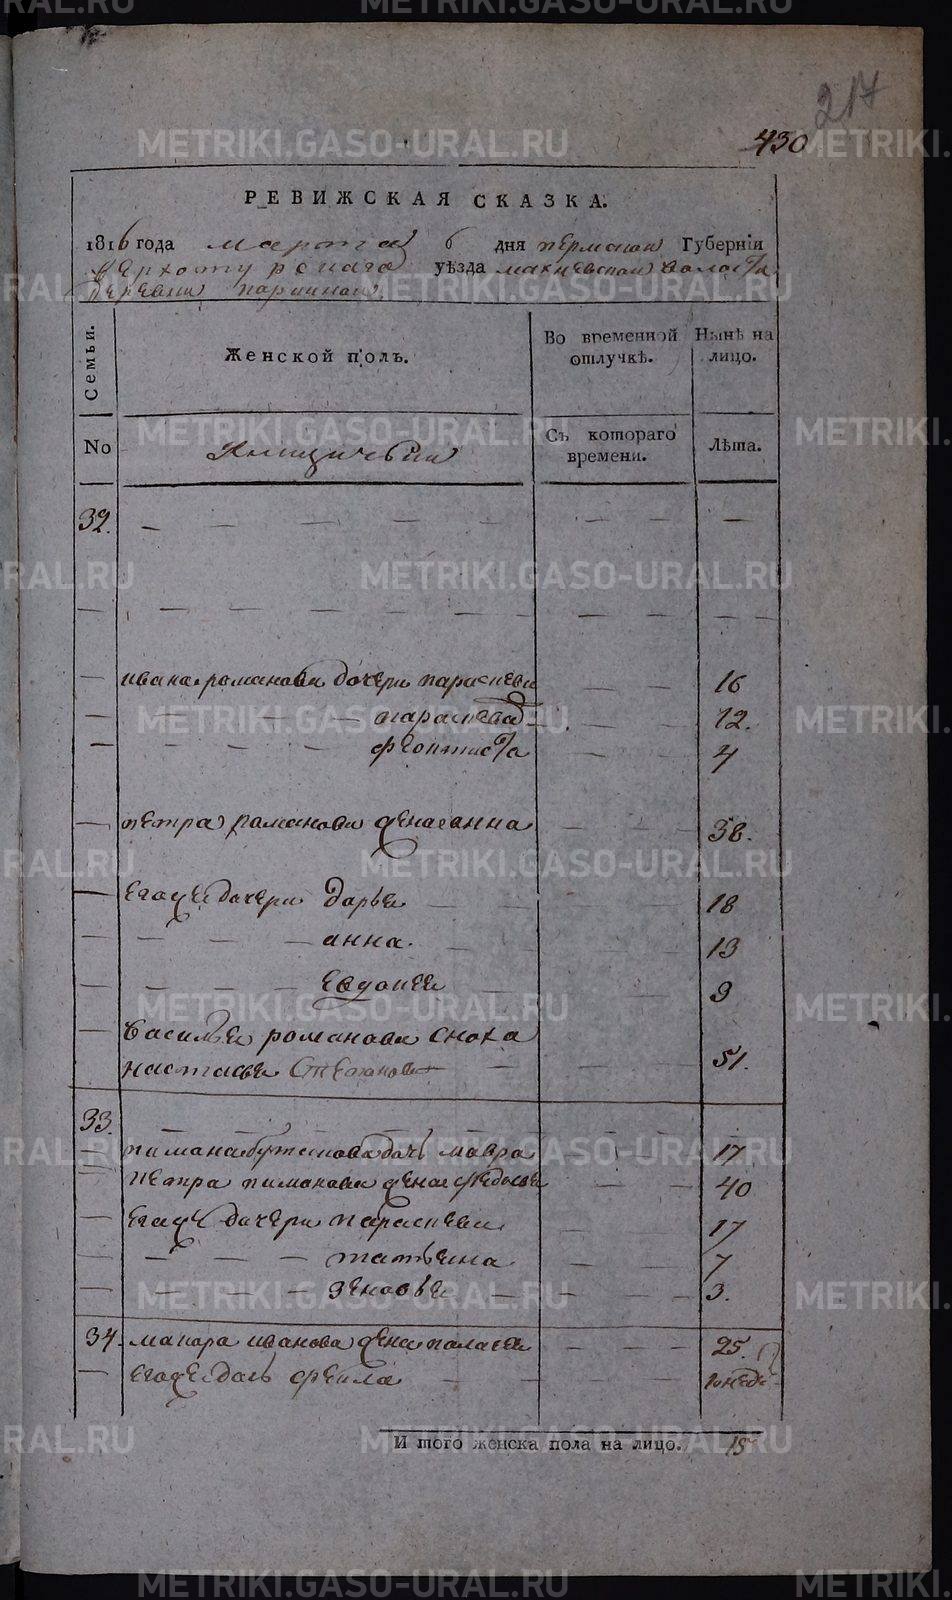 217
430
РЕВИЖСКАЯ СКАЗКА.
1816 года марта 6 дня пермской Губернiи
верхотурскаго уѣзда махневской волости
деревни
Семьи.
Женской полъ.
Во временной отлучкѣ.
Нынѣ на лицо.
No
Съ котораго времени.
Лѣта.
32.
ивана романова дочери парасковья 16
парасковья 12.
феоктиста 4
петра романова жена анна 38.
егоже дочери дарья 18
анна. 13
евдокея 9
василья романова сноха
настасья степанова 51.
33.
пимана бутакова дочь мавра 17
петра пиманова жена федосья 40
егоже дочери парасковья 17
татьяна 7
зеновья 3.
34. макара иванова жена палагея 25.
егоже дочь фекла
И того женска пола на лицо. 15
METRIKI.GASO-URAL.RU